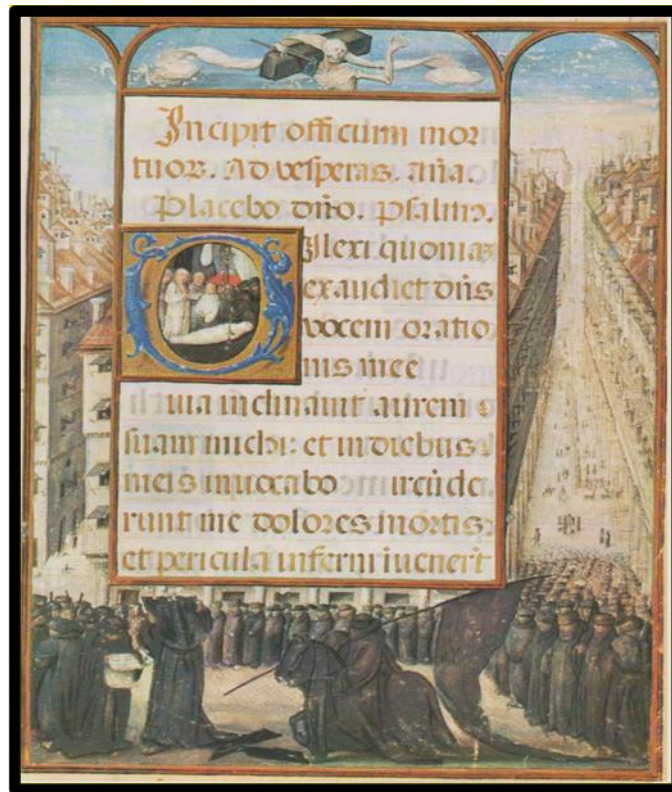 Incipit officium mor
tuoꝝ. Ad vesperas. aña.
Placebo dn̄o. psalm9.
Dilexi quoniaʒ
exaudiet dn̄s
vocem oratio
nis mee
uia inclinavit aurem
suam michi: et in diebus
meis invocabo ircūde
runt me dolores mortis:
et pericula inferni ivenerūt